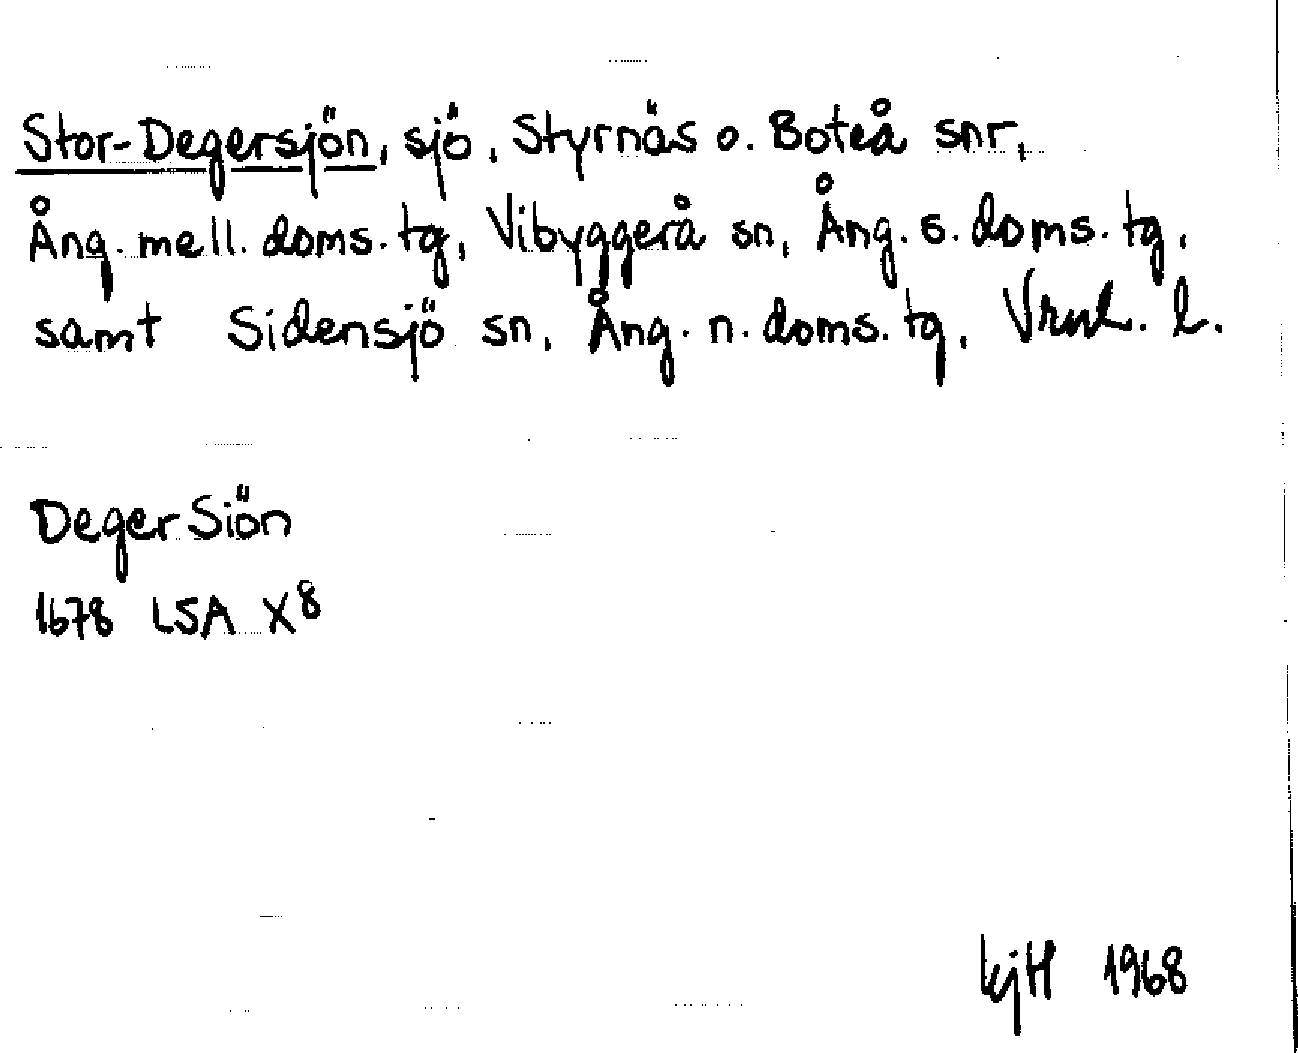 Stor-Degersjön, sjö, Styrnäs o. Boteå snr,
Ång. mell. doms. tg, Vibyggerå sn, Ång. s. doms. tg,
samt Sidensjö sn, Ång. n. doms. tg, Vrnl. l.
Deger Siön
1678 LSA X8
kjH 1968